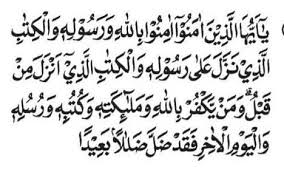 يٰٓاَيُّهَا الَّذِيْنَ اٰمَنُوْٓا اٰمِنُوْا بِاللّٰهِ وَرَسُوْلِهٖ وَالْكِتٰبِ
الَّذِيْ نَزَّلَ عَلٰى رَسُوْلِهٖ وَالْكِتٰبِ الَّذِيْٓ اَنْزَلَ مِنْ
قَبْلُ ۗ وَمَنْ يَّكْفُرْ بِاللّٰهِ وَمَلٰۤىِٕكَتِهٖ وَكُتُبِهٖ وَرُسُلِهٖ
وَالْيَوْمِ الْاٰخِرِ فَقَدْ ضَلَّ ضَلٰلًا ۢ بَعِيْدًا